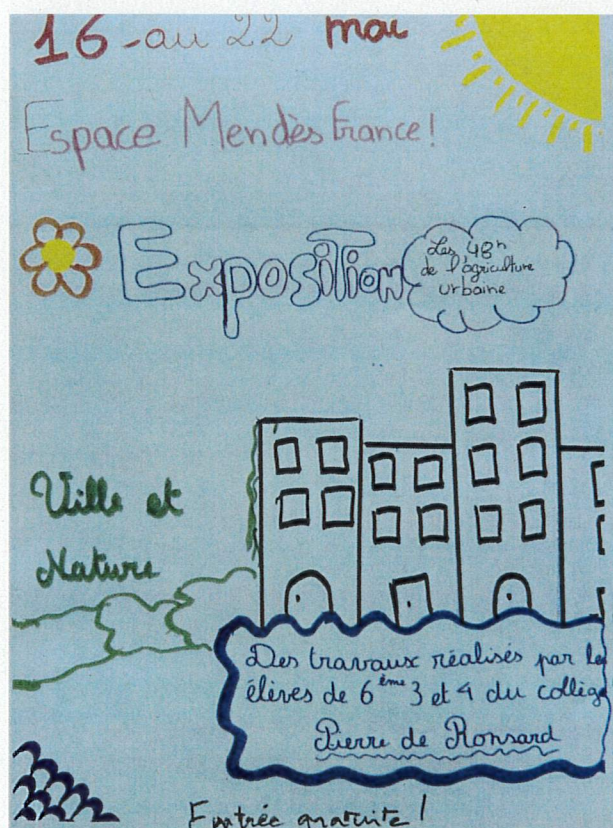 16 - au 22 mai
Espace Mendès France!
Exposition
Les 48h
de l'agriculture
urbaine
Ville et
Nature
Des travaux réalisés par le
élèves de 6ème 3 et 4 du collège
Pierre de Ronsard
Entrée gratuite!